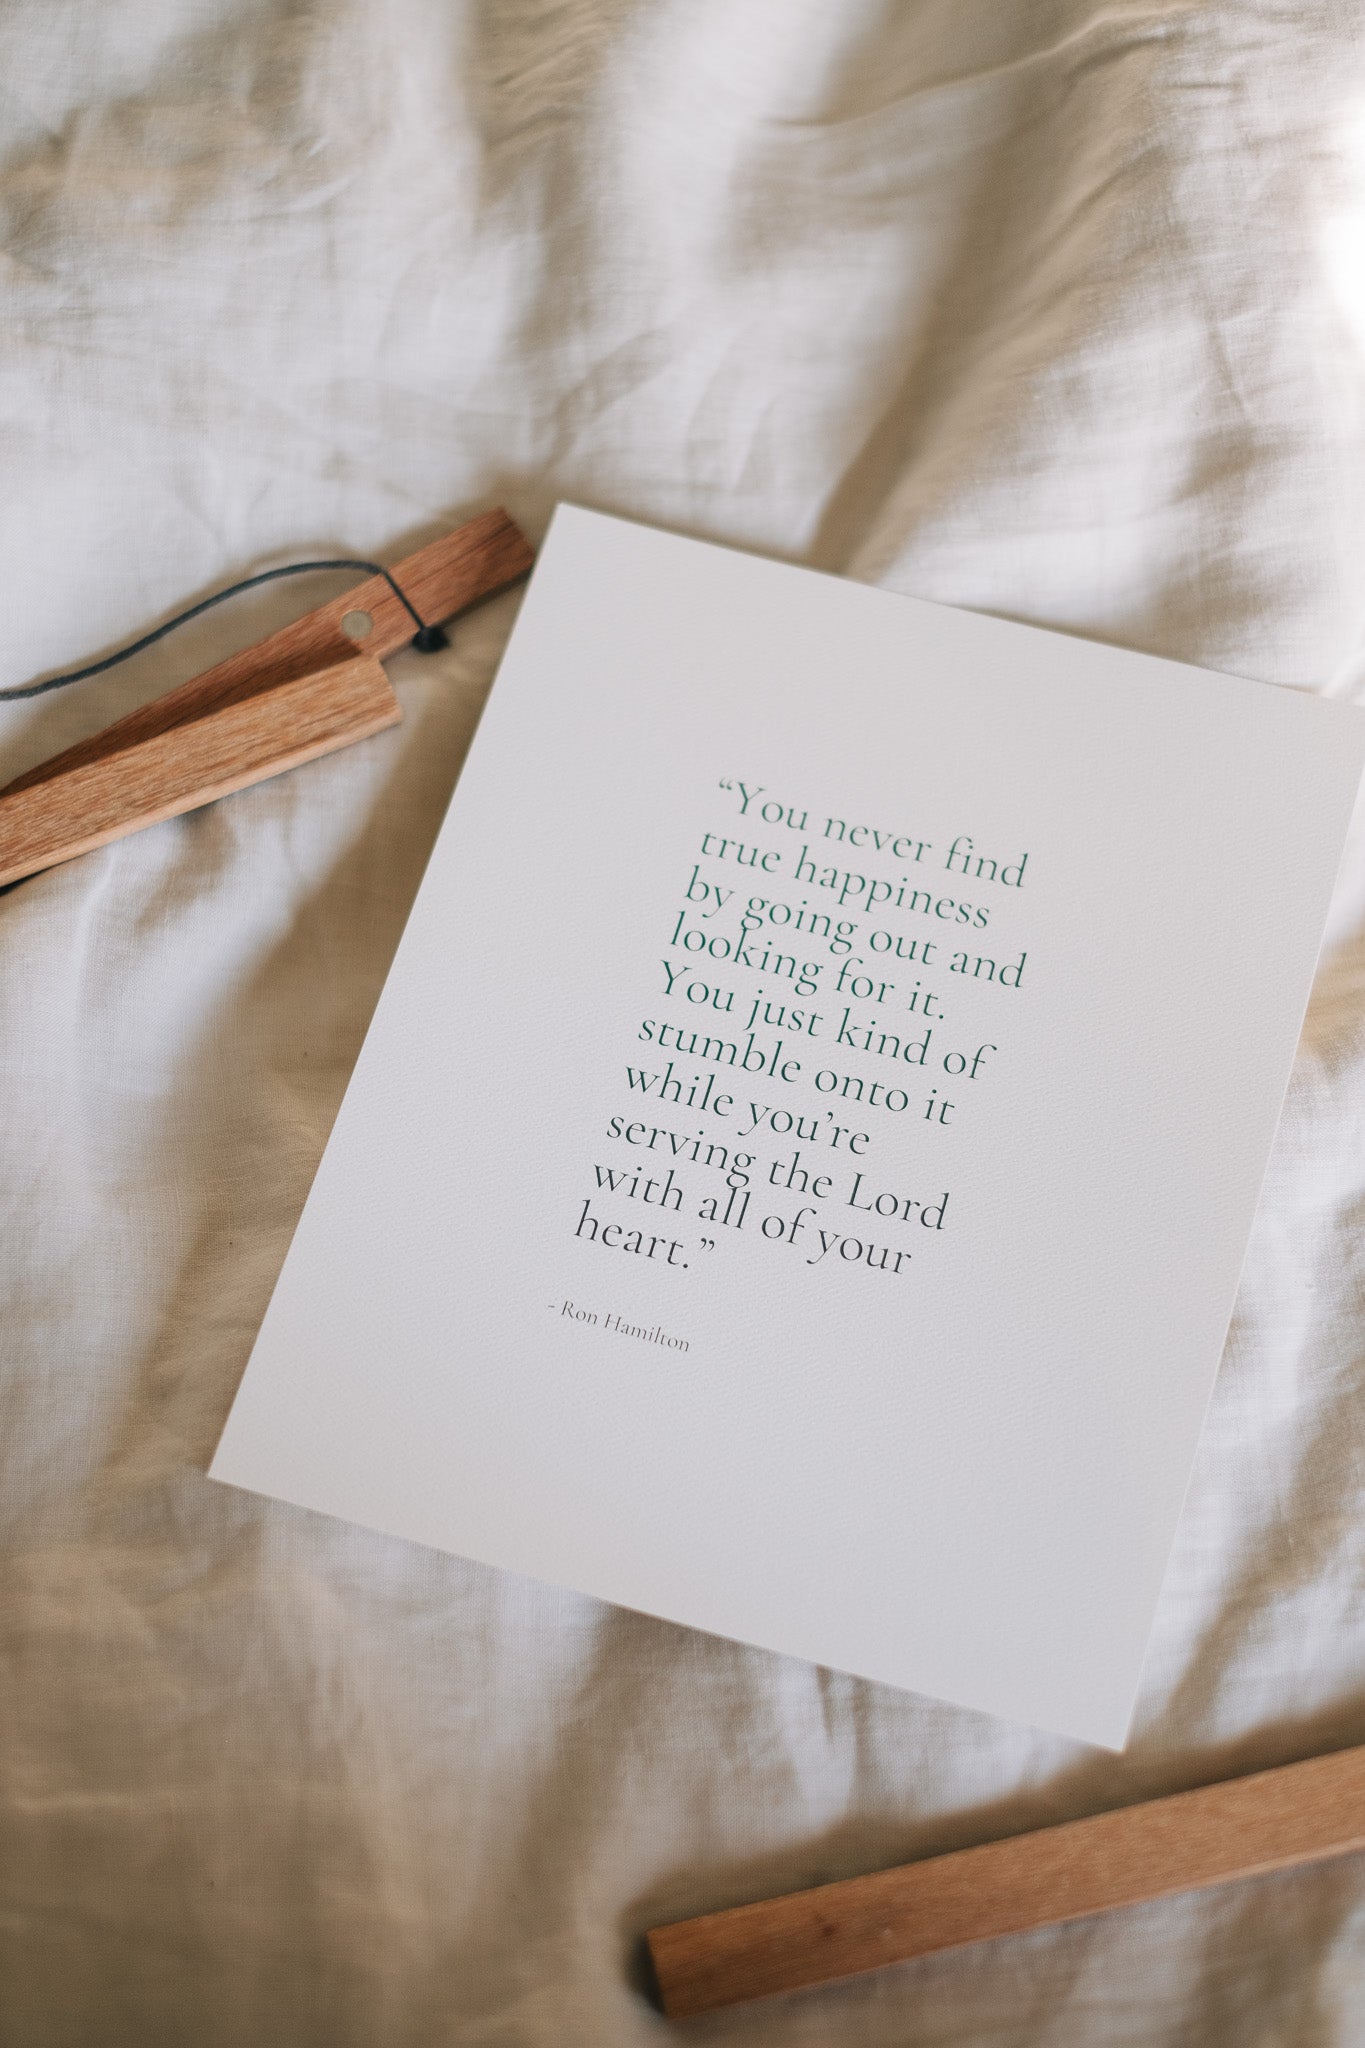 “You never find
true happiness
by going out and
looking for it.
You just kind of
stumble onto it
while you’re
serving the Lord
with all of your
heart.”
- Ron Hamilton